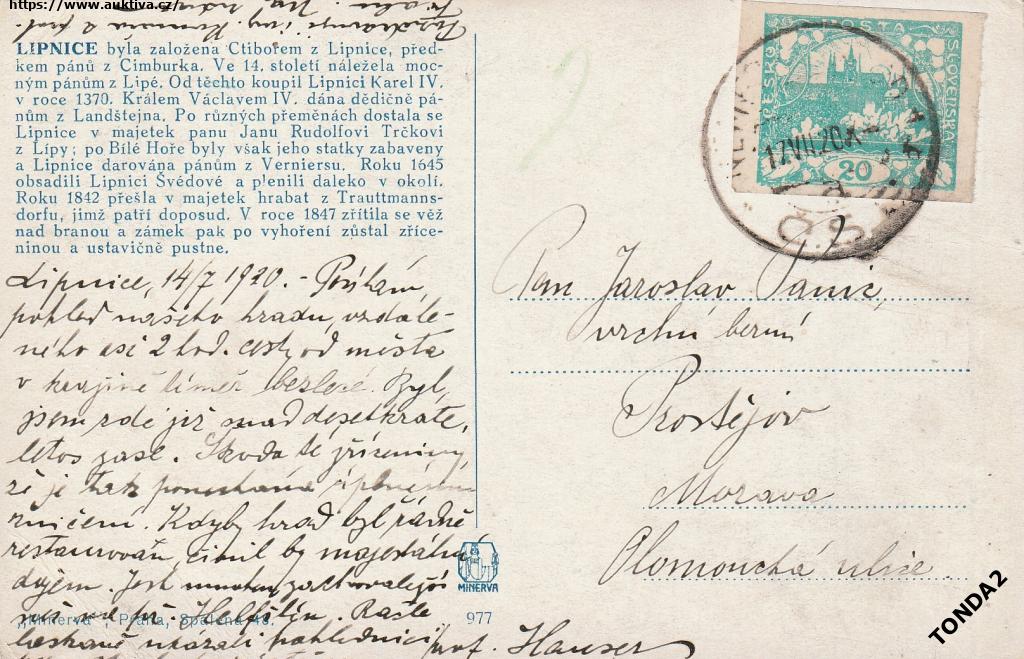 https://www.auktiva.cz/
LIPNICE byla založena Ctiborem z Lipnice, před-
kem pánů z Cimburka. Ve 14. století náležela moc-
ným pánům z Lipé. Od těchto koupil Lipnici Karel IV.
v roce 1370. Králem Václavem IV. dána dědičně pá-
nům z Landštejna. Po různých přeměnách dostala se
Lipnice v majetek panu Janu Rudolfovi Trčkovi
z Lípy; po Bílé Hoře byly však jeho statky zabaveny
a Lipnice darována pánům z Verniersu. Roku 1645
obsadili Lipnici Švédové a plenili daleko v okolí.
Roku 1842 přešla v majetek hrabat z Trauttmanns-
dorfu, jimž patří doposud. V roce 1847 zřítila se věž
nad branou a zámek pak po vyhoření zůstal zříce-
ninou a ustavičně pustne.
Lipnice, 14/7 1920. - Posílám
pohled našeho hradu, vzdále-
ného asi 2 hod. cesty od města
v krajině téměř bezlesé. Byl
jsem zde již snad desetkráte,
letos zase. Škoda té zříceniny
že je tak ponechána úplnému
zničení. Kdyby hrad byl řádně
restaurován, činil by majestátní
dojem. Jest mnohem zachovalejší
než na př. Helfštýn. Račte
laskavě ukázati pohlednici
prof. Hauser
„Minerva", Praha, Spálená 48.
MINERVA
977
POSTA
ČESKO
SLOVENSKÁ
20
17.VII.20
Pan Jaroslav Janic,
vrchní berní
Prostějov
Morava
Olomoucká ulice.
TONDA2